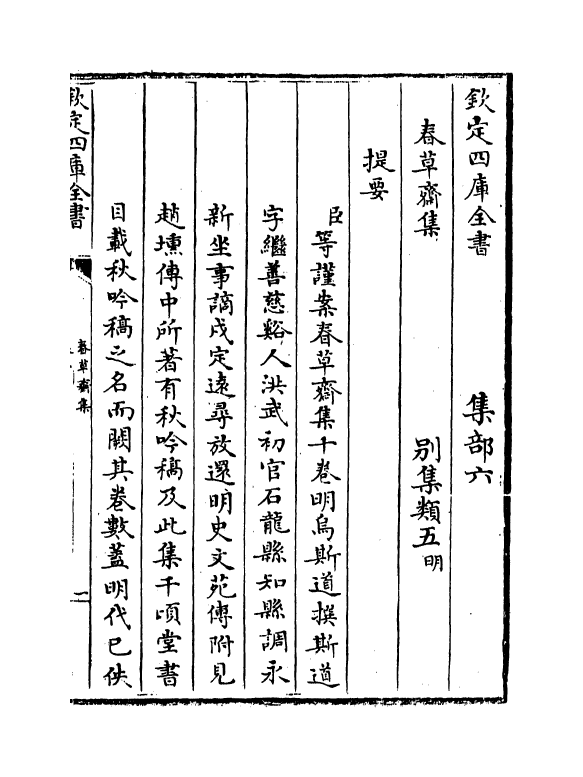 欽定四庫全書　集部六
春草齋集　別集類五明
提要
臣等謹案春草齋集十卷明烏斯道撰斯道
字繼善慈谿人洪武初官石龍縣知縣調永
新坐事謫戍定遠尋放還明史文苑傳附見
趙壎傳中所著有秋吟稿及此集千頃堂書
目載秋吟稿之名而闕其卷數蓋明代已佚
欽定四庫全書
春草齋集